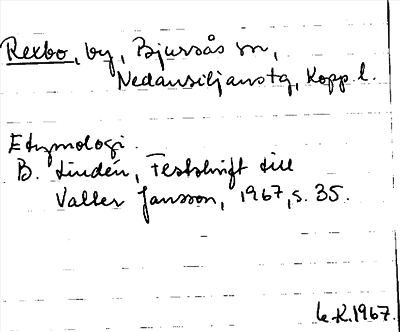 Rexbo, by, Bjursås sn,
Nedansiljanstg, Kopp. l.
Etymologi.
B. Lindén, Festskrift till
Valter Jansson, 1967, s. 35.
K. 1967.